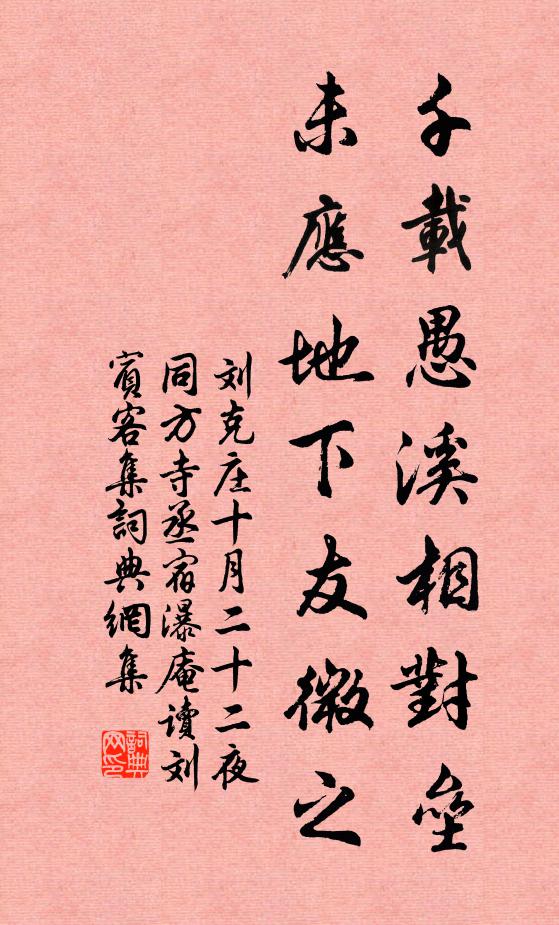 千載愚溪相對壘
未應地下友微之
刘克庄十月二十二夜
同方寺丞宿瀑庵读刘
賓客集詞典網集
詞典网印